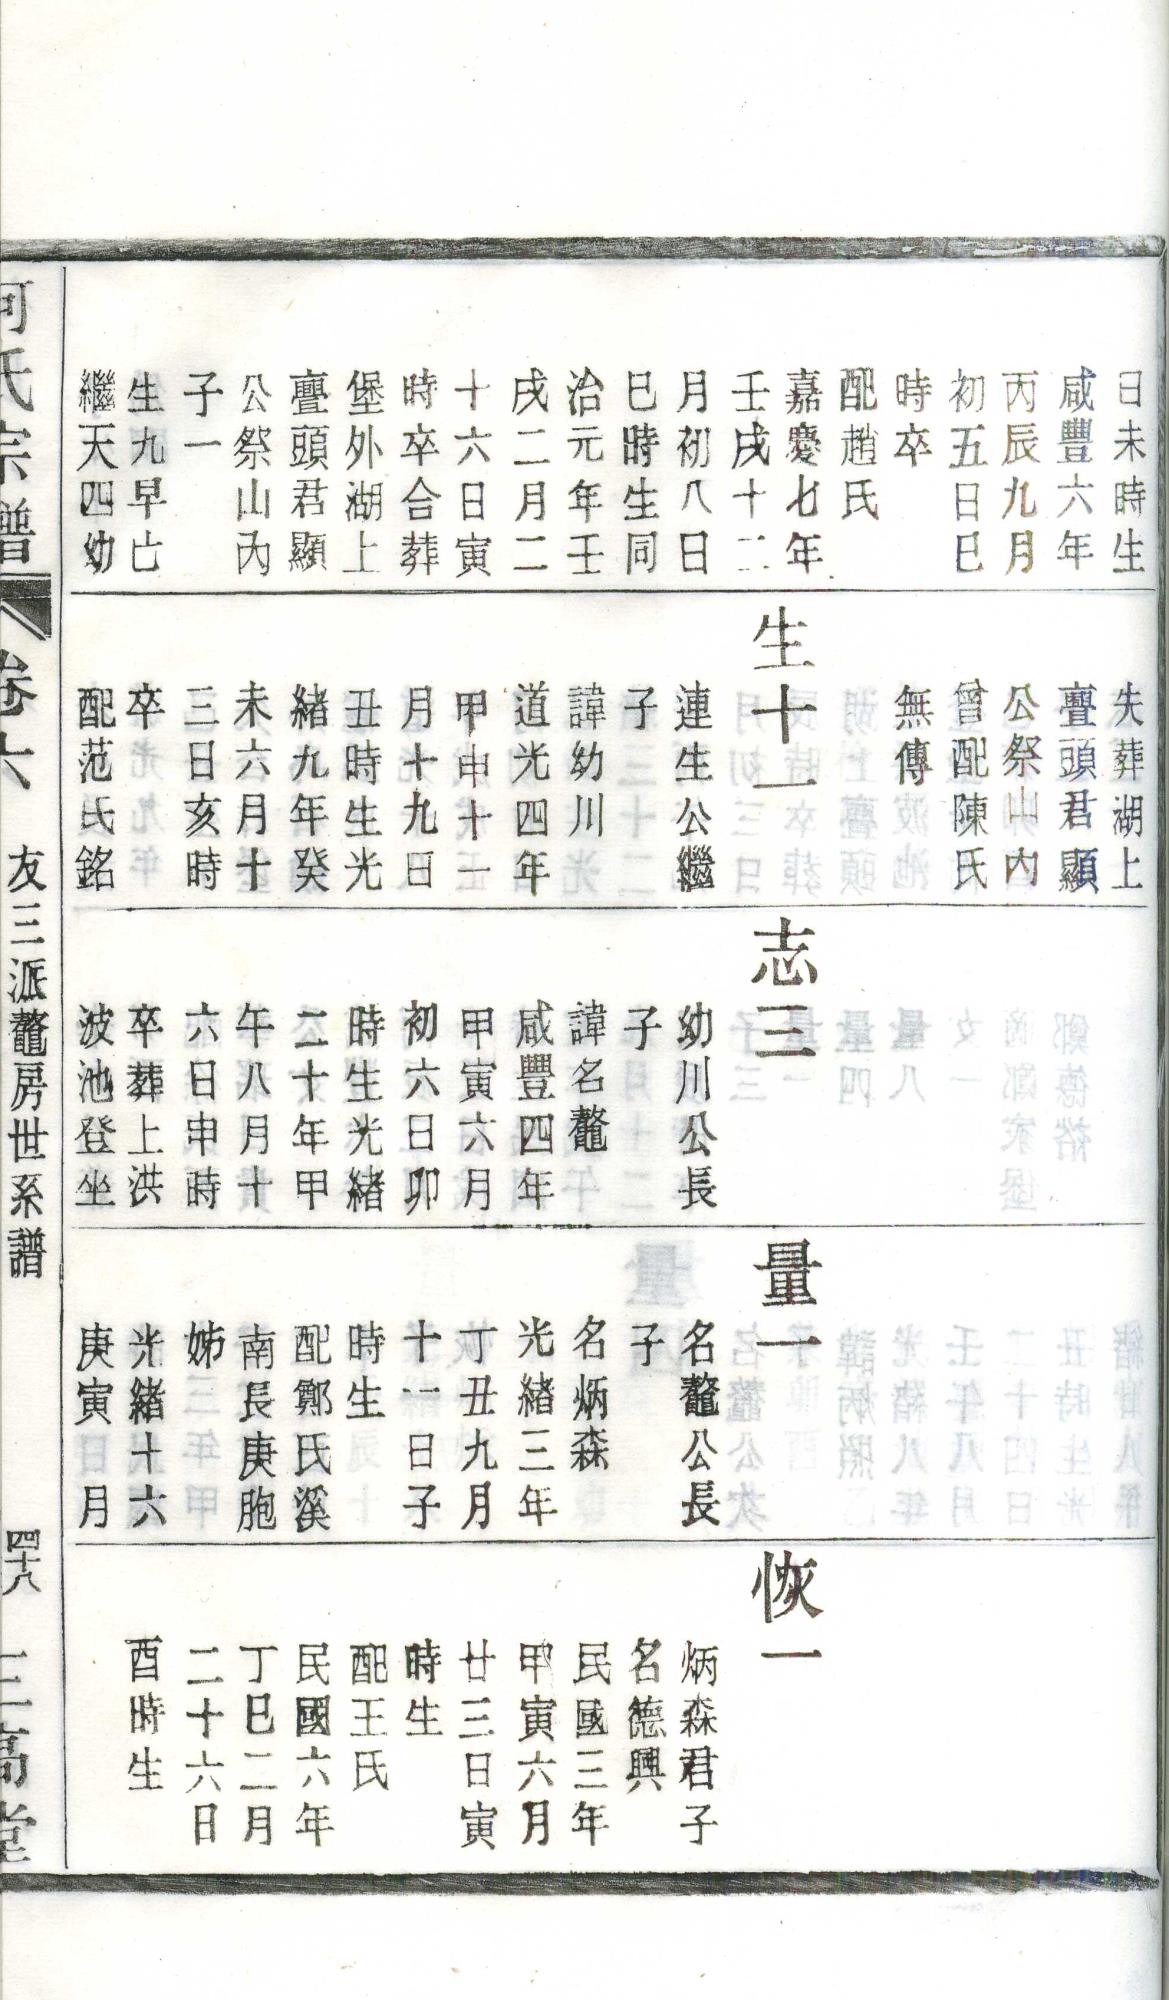 日未時生
咸豐六年
丙辰九月
初五日巳
時卒
配趙氏
嘉慶七年
壬戌十二
月初八日
巳時生同
治元年壬
戌二月二
十六日寅
時卒合葬
堡外湖上
亹頭君顯
公祭山內
子一
生九早亡
繼天四幼
失葬湖上
亹頭君顯
公祭山內
曾配陳氏
無傳
生十一
連生公繼
子
諱幼川
道光四年
甲申十一
月十九日
丑時生光
緒九年癸
未六月十
三日亥時
卒
配范氏銘
志三
幼川公長
子
諱名鼇
咸豐四年
甲寅六月
初六日卯
時生光緒
二十年甲
午八月十
六日申時
卒葬上洪
波池登坐
量一
名鼇公長
子
名炳森
光緒三年
丁丑九月
十一日子
時生
配鄭氏溪
南長庚胞
姊
光緒十六
庚寅日月
恢一
炳森君子
名德興
民國三年
甲寅六月
廿三日寅
時生
配王氏
民國六年
丁巳二月
二十六日
酉時生
何氏宗譜
卷六
友三派鼇房世系譜
四十八
三高堂